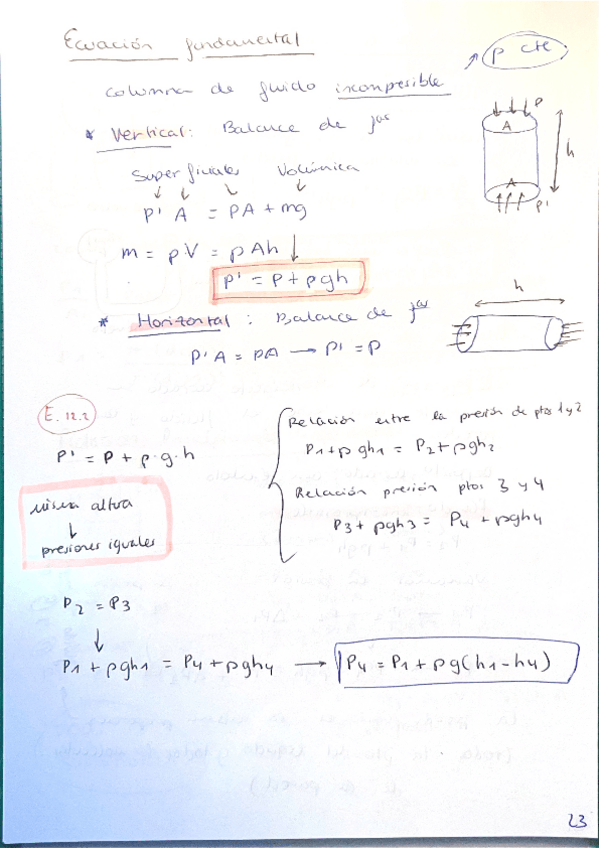 Ecuación fundamental
ρ cte.
columna de fluido incompresible
* Vertical: Balance de fzas
P
A
h
A
P'
Superficiales Volúmica
P' A = PA + mg
m = ρV = ρAh
P' = P + ρgh
* Horizontal: Balance de fzas
h
P'A = PA → P' = P
E. 12.2
P' = P + ρ·g·h
misma altura
↓
presiones iguales
Relación entre la presión de ptos 1 y 2
P1 + ρgh1 = P2 + ρgh2
Relación presión ptos 3 y 4
P3 + ρgh3 = P4 + ρgh4
P2 = P3
↓
P1 + ρgh1 = P4 + ρgh4 → P4 = P1 + ρg(h1 - h4)
23